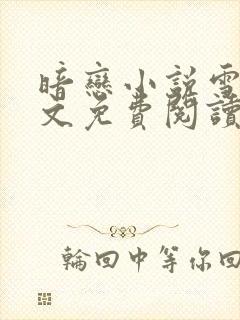 暗戀小説雪
文免費閱讀
輪回中等你回